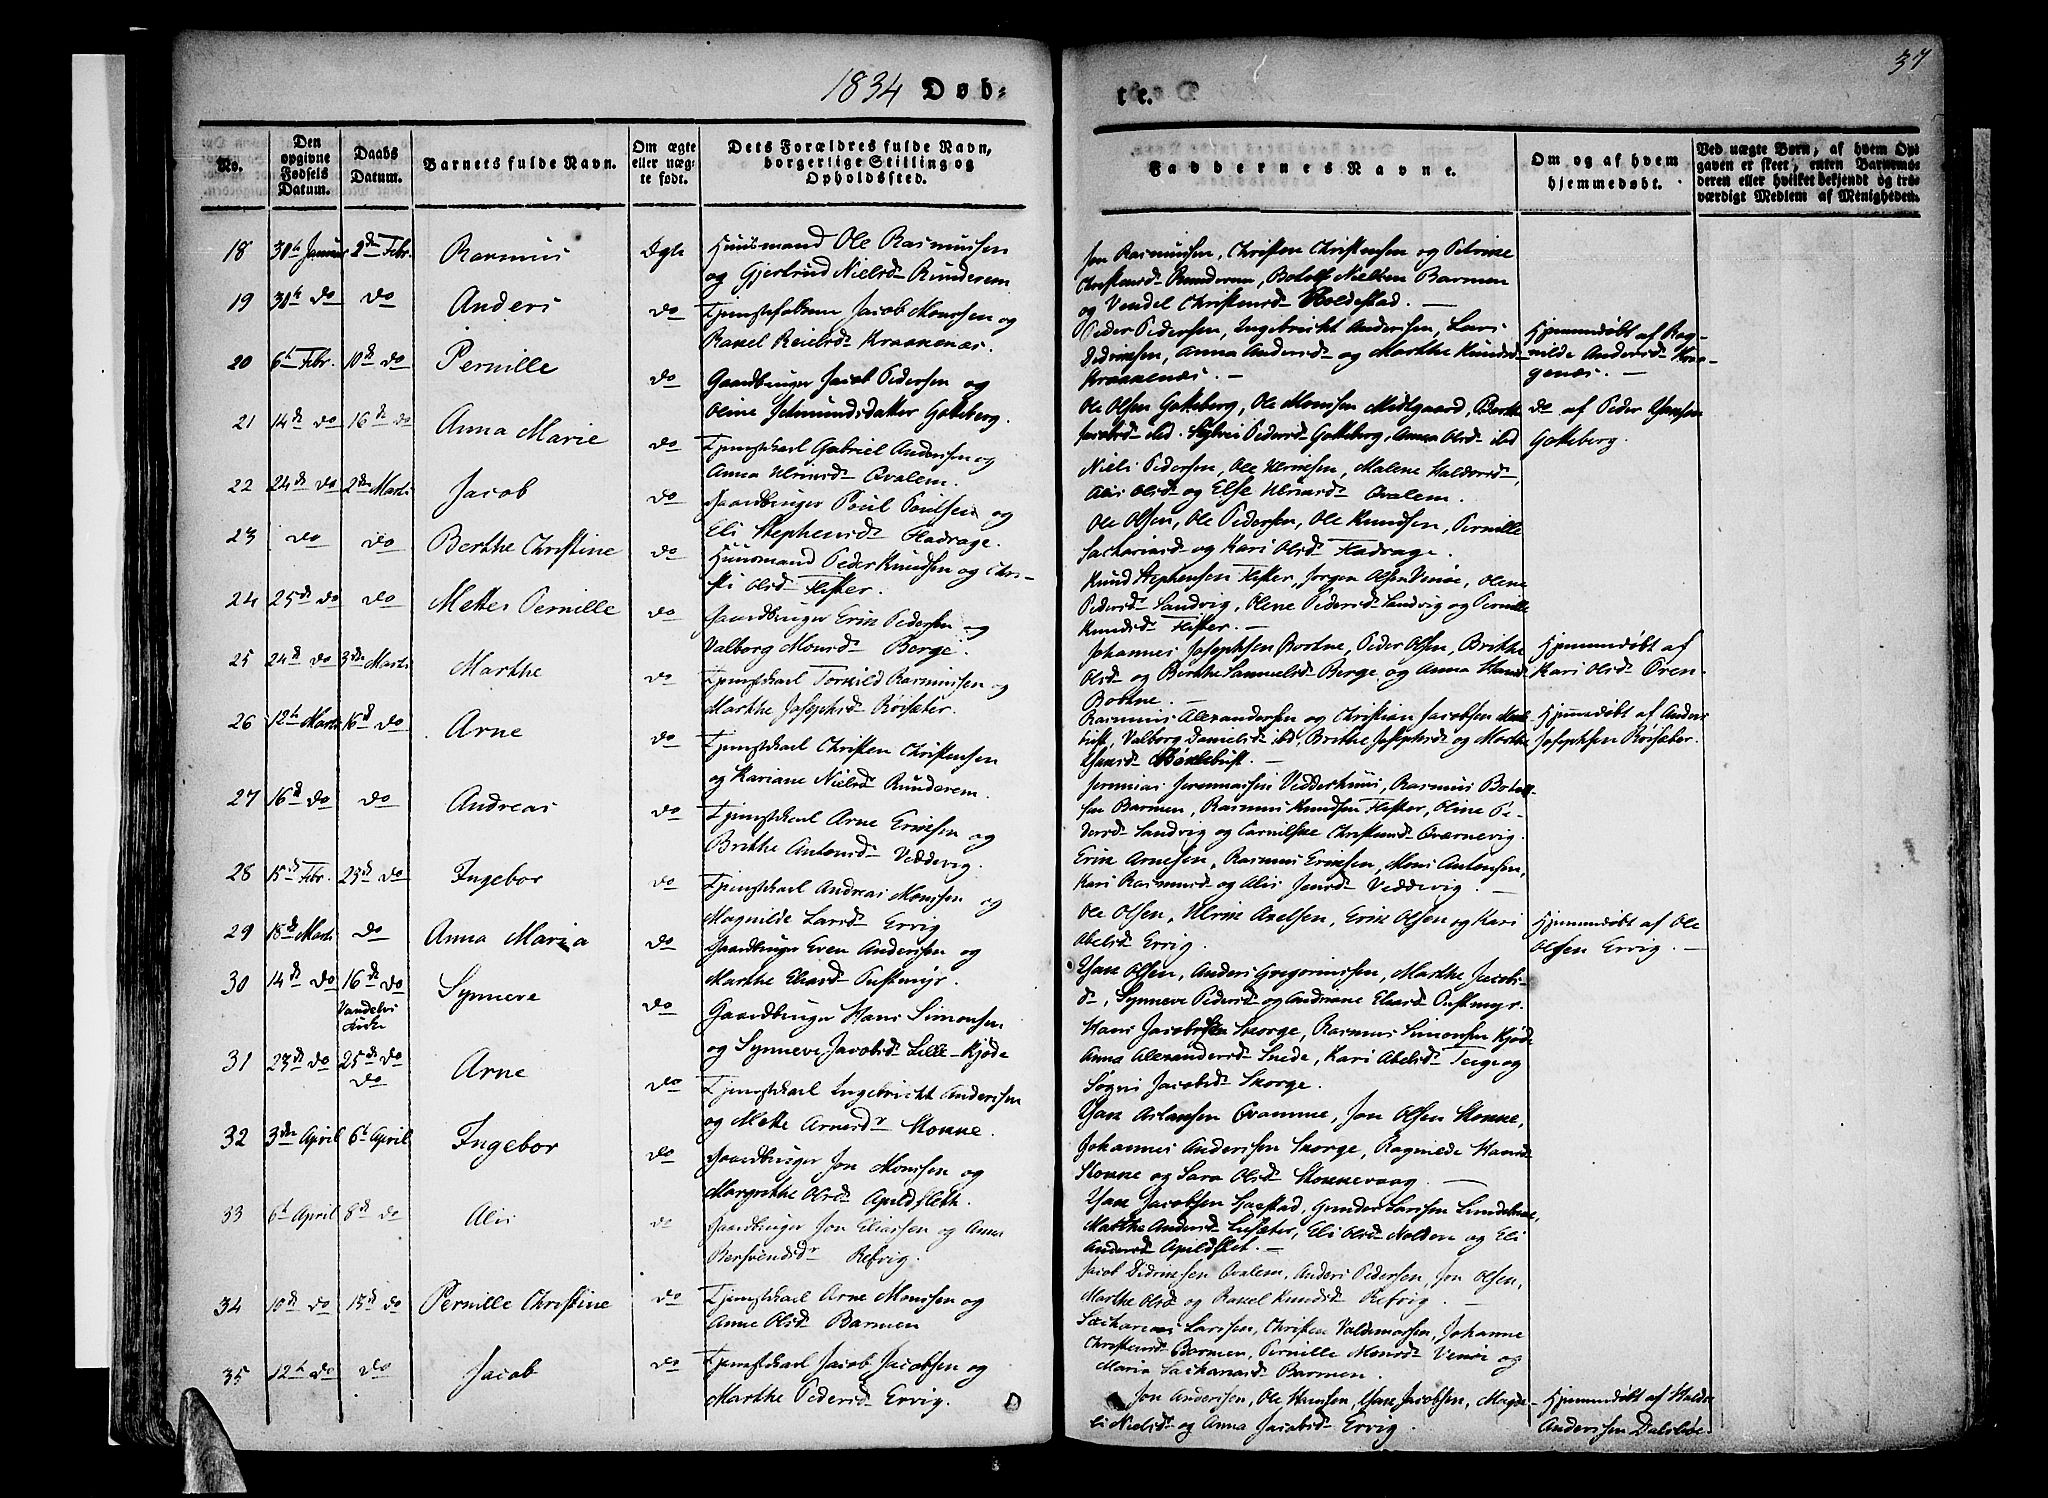 1834 Døb=
te.
37
No.
Den opgivne Fødsels Datum.
Daabs Datum.
Barnets fulde Navn.
Om ægte eller uægte født.
Dets Forældres fulde Navn, borgerlige Stilling og Opholdssted.
Faddernes Navne.
Om og af hvem hjemmedøbt.
Ved uægte Børn, af hvem Opgaven er skeet, enten Barnemoderen eller hvilket bekjendt og troværdigt Medlem af Menigheden.
18 30te Januar 2den Febr. Rasmus Ægte
Huusmand Ole Rasmussen
og Gjertrud Nielsd. Runderem
Rasmussen, Christen Christensen og Petrine
Christensd. Runderem, Botolf Nielsen Barmen
og Vendel Christensd. Holdestad. —
19 30te do do Anders do
Tjenestekarl Jacob Monssen og
Raxel Reielsd. Kraakenæs.
Peder Pedersen, Ingebricht Andersen, Lars
Didrixsen, Anna Andersd. og Marthe Knudsd.
Kraakenæs. —
Hjemmedøbt af Rag-
nilde Andersd. Kraa-
genæs. —
20 6te Febr. 10de do Pernille do
Gaardbruger Jacob Pedersen og
Oline Jetmundsdatter Gotteberg.
Ole Olsen Gotteberg, Ole Monssen Midtgaard, Berthe
Jacobsd. ibd. Pedersd. Gotteberg, Anna Olsd. ibd
do af Peder Hansen
Gotteberg.
21 14de do 16de do Anna Marie do
Tjenestekarl Gabriel Anderssen og
Anna Ulrixsd. Qvalem.
Niels Pedersen, Ole Ulrixsen, Malene Haldorsd.
Alis Olsd. og Else Ulrixsd. Qvalem.
22 24de do 2den Marts Jacob do
Gaardbruger Poul Poulsen og
Eli Stephensd. Fladrage.
Ole Olsen, Ole Pedersen, Ole Knudsen, Pernille
Sachariasd. og Kari Olsd. Fladrage.
23 do do Berthe Christine do
Huusmand Peder Knudsen og Chri-
sti Olsd. Flister.
Knud Stephensen Flister, Jørgen Olsen Venøe, Olene
Pedersd. Sandvig, Olene Pedersd. Sandvig og Pernille
Knudsd. Flister. —
24 25de do do Mettes Pernille do
Gaardbruger Erik Pedersen og
Valborg Monsd. Berge.
Johannes Josephsen Bortne, Peder Olsen, Brithe
Olsd. og Berthe Samuelsd. Berge og Anna Hansd.
Bortne. —
Hjemmedøbt af
Kari Olsd. Oren-
25 24de do 3die Marts Marthe do
Tjenestekarl Torkild Rasmussen og
Marthe Josephsd. Røisæter.
Rasmus Alexandersen og Christian Jacobsen
Valborg Danielsd. ibd, Brithe Josephsd. og Marthe
Hjemmedøbt af Anders
Josephsen Røisæter.
26 12te Marts 16de do Arne do
Tjenestekarl Christen Christensen
og Kariane Nielsd. Runderem.
Jeremias Jeremiassen Vedderhuus, Rasmus
sen Barmen, Rasmus Knudsen Flister, Oline Pe-
dersd. Sandvig og Christensd. Qværnevig.
27 16de do do Andreas do
Tjenestekarl Arne Erixsen og
Brithe Antonsd. Veddevig.
Erik Arnesen, Rasmus Erixsen, Mons Antonsen,
Kari Rasmusd. og Alis Jensd. Veddevig. —
28 15de Febr. 23de do Ingebor do
Tjenestekarl Andreas Monssen og
Magnilde Larsd. Ervig
Ole Olsen, Ulrik Axelsen, Erik Olsen og Kari
Abelsd. Ervig.
Hjemmedøbt af Ole
Olsen Ervig. —
29 18de Marts do Anna Maria do
Gaardbruger Even Anderssen og
Marthe Eliasd. Tuftmyr.
Hans Olsen, Anders Gregoriussen, Marthe Jacobs-
d., Synneve Pedersd. og Andriane Eliasd. Tuftmyr.
30 14de do 16de do Vandelvs Kirke Synneve do
Gaardbruger Hans Simonsen
og Synneve Jacobsd. Lille-Kjøde
Hans Jacobsen Skorge, Rasmus Simonsen Kjøde
Anna Alexandersd. Snede, Kari Abelsd. Teige og
Søgni Jacobsd. Skorge.
31 23de do 25de do do Arne do
Tjenestekarl Ingebricht Anderssen
og Mette Arnesd. Stokke.
Hans Aslaksen Qvamme, Jon Olsen Stokke,
Johannes Anderssen Skorge, Ragnilde Hansd.
Stokke og Sara Olsd. Stokkevaag. —
32 3die April 6te April Ingebor do
Gaardbruger Jon Monssen og
Margrethe Olsd. Apuldfleth.
Hans Jacobsen Gaxstad, Gunder Larssen
Marthe Andersd. Lisæter, Eli Olsd. Nolden og Eli
Andersd. Apildflet. —
33 6te April 8de do Alis do
Gaardbruger Jon Eliassen og Anna
Bersvendsd. Refvig.
Jacob Didrixsen Qvalem, Anders Pedersen, Jon Olsen,
Marthe Olsd. og Raxel Knudsd. Refvig. —
34 10de do 13de do Pernille Christine do
Tjenestekarl Arne Monssen og
Anne Olsd. Barmen
Sacharias Larssen, Christen Valdemarsen, Johanne
Christensd. Barmen, Pernille Monsd. Venøe og
Maria Sachariasd. Barmen.
35 12te do do Jacob do
Tjenestekarl Jacob Jacobsen og
Marthe Pedersd. Ervig.
Jon Anderssen, Ole Hansen, Hans Jacobsen, Magde-
li Nielsd. og Anna Jacobsd. Ervig.
Hjemmedøbt af Haldor
Anderssen Dalsbøe